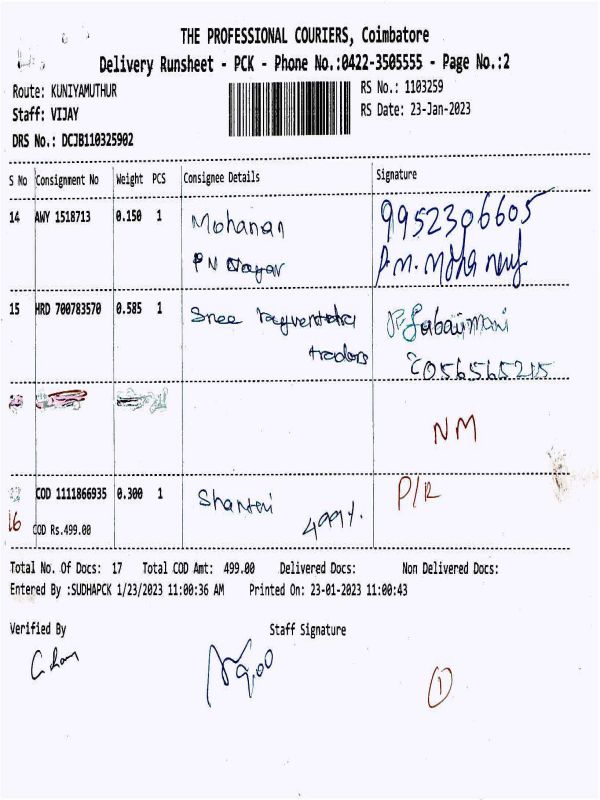 THE PROFESSIONAL COURIERS, Coimbatore
Delivery Runsheet - PCK - Phone No.:0422-3505555 - Page No.:2
Route: KUNIYAMUTHUR
RS No.: 1103259
Staff: VIJAY
RS Date: 23-Jan-2023
DRS No.: DCJB110325902
S No Consignment No Weight PCS Consignee Details Signature
14 AWY 1518713 0.150 1 Mohanan 9952306605
PN Nagar P.M.
15 HRD 700783570 0.585 1 Sree
traders
NM
COD 1111866935 0.300 1 P/R
16 COD Rs.499.00
Total No. Of Docs: 17 Total COD Amt: 499.00 Delivered Docs: Non Delivered Docs:
Entered By :SUDHAPCK 1/23/2023 11:00:36 AM Printed On: 23-01-2023 11:00:43
Verified By Staff Signature
1